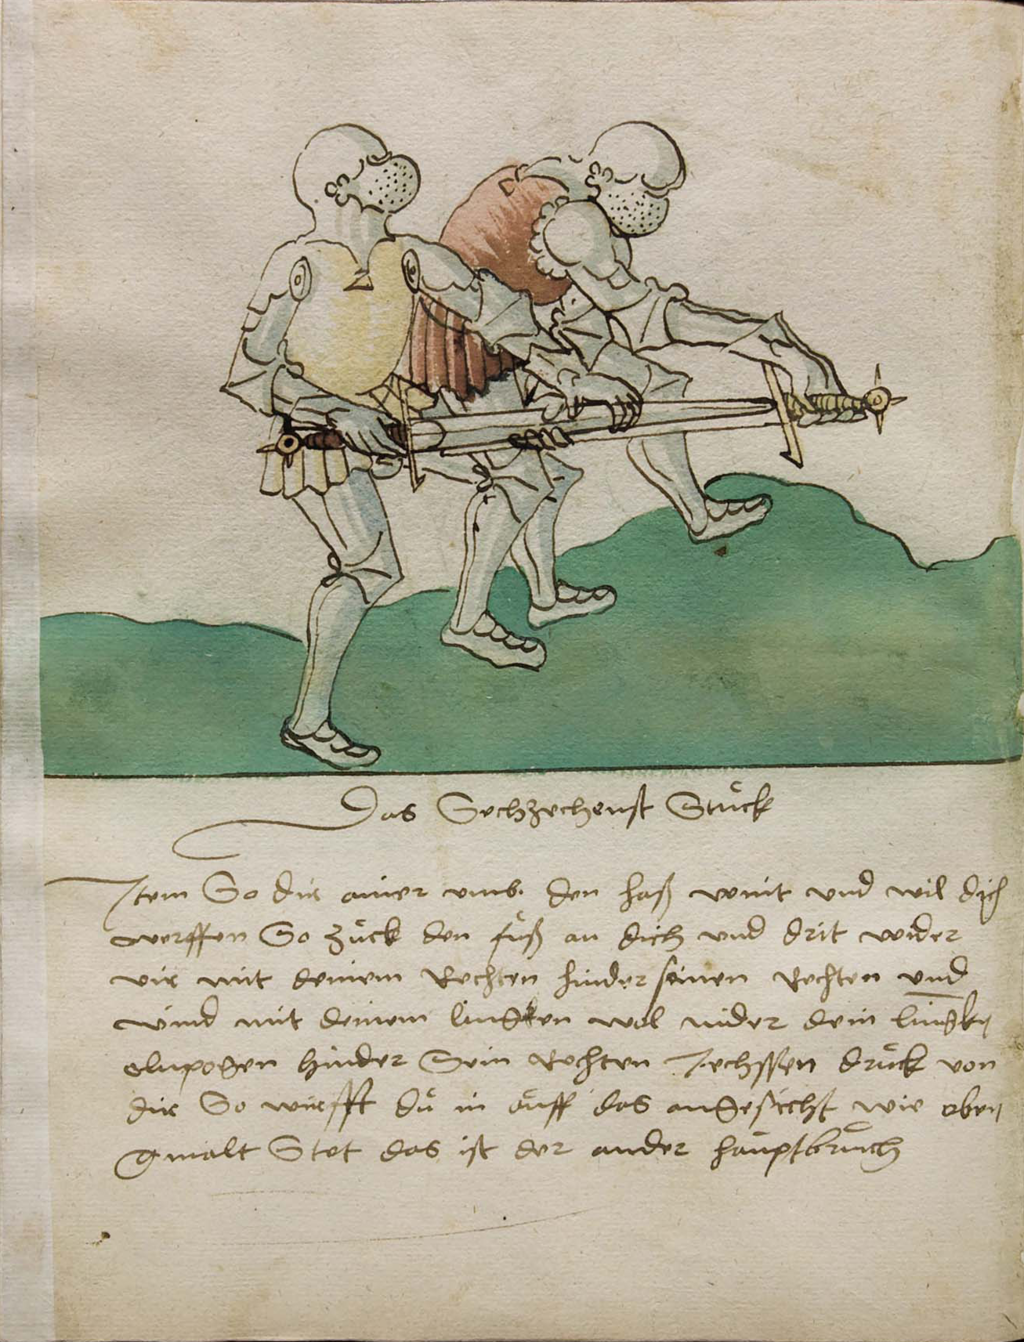 Das Sechzechenst Stuck
Item So dir ainer umb den halß ... und wil dich
werffen So zuck den fuß an dich und drit wider
... mit deinem Rechten hinder seinen Rechten und
wind mit deinem lingken wol nider dein lingken
elnpogen hinder Sein Rechten Iechssen druck von
dir So wirffst du in auff das angesicht wie oben
gmalt Stet das ist der ander hauptbruch